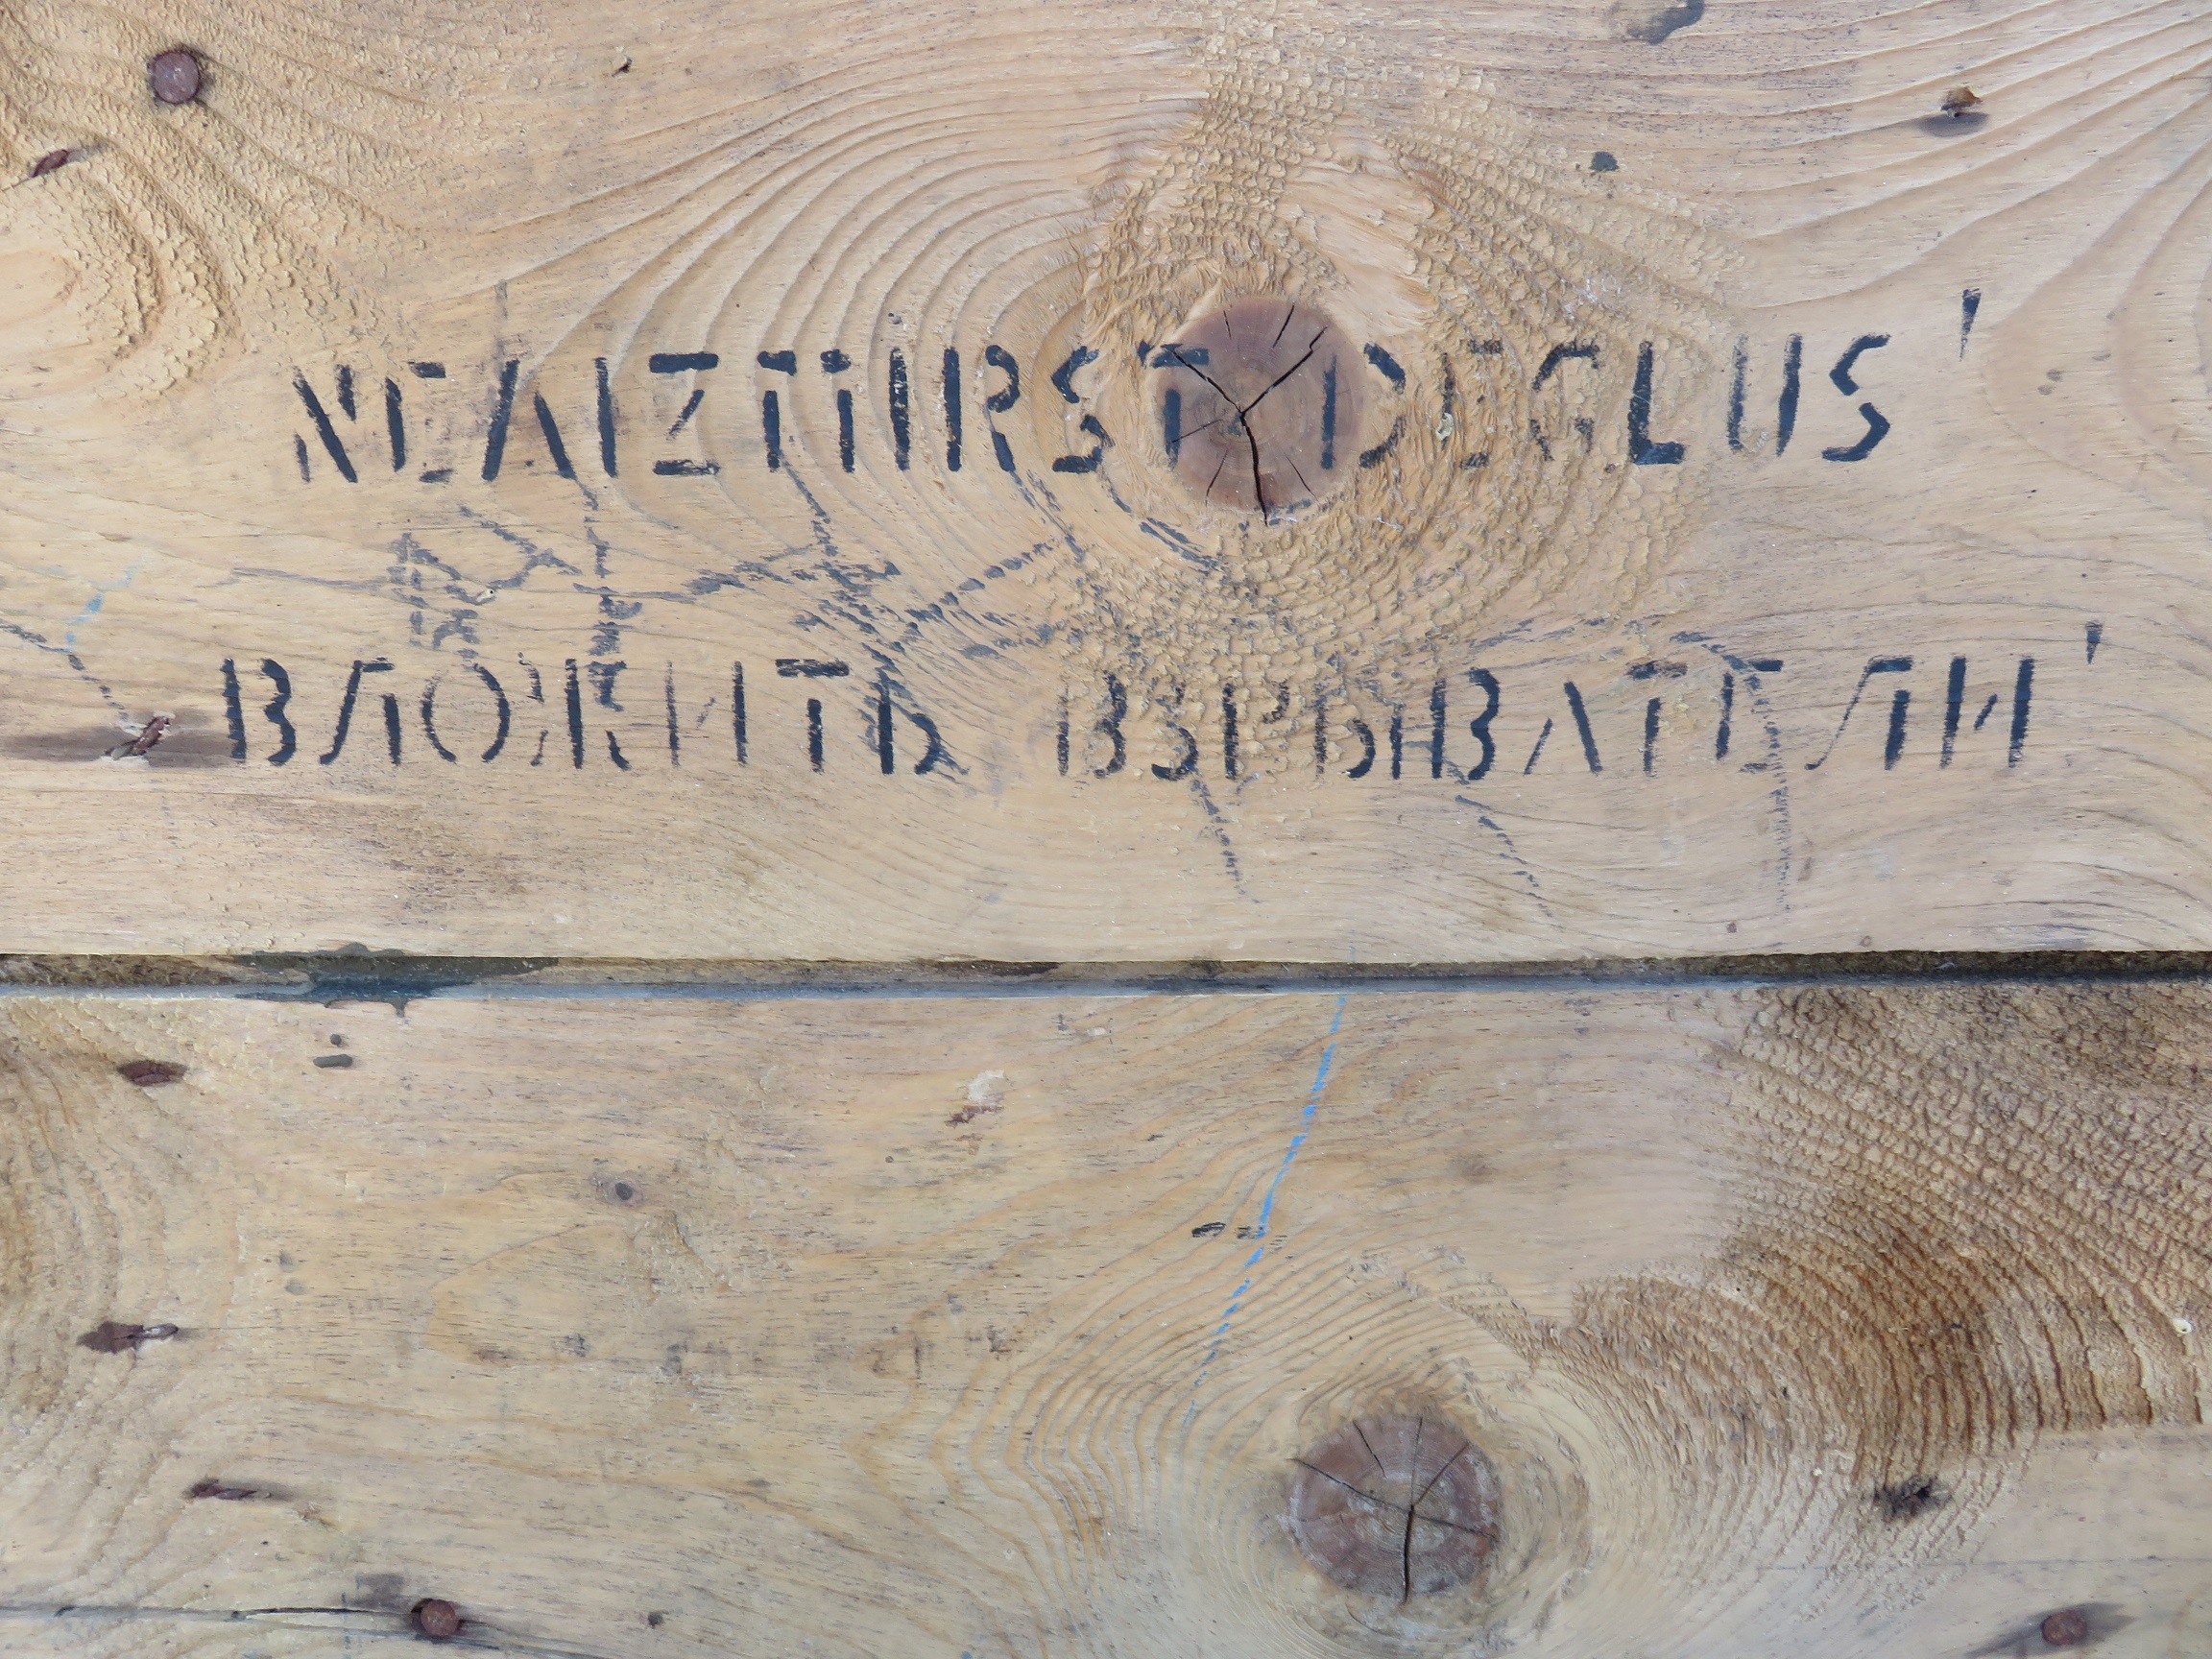 NEAIZMIRST DEGLUS!
ВЛОЖИТЬ ВЗРЫВАТЕЛИ!